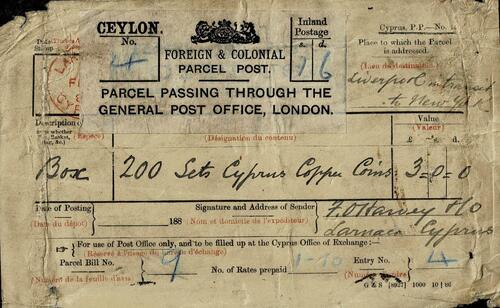 CEYLON.
No.
4
FOREIGN & COLONIAL
PARCEL POST.
Inland
Postage
s. d.
1 6
PARCEL PASSING THROUGH THE
GENERAL POST OFFICE, LONDON.
Cyprus, P.P.—No.
Place to which the Parcel
is addressed
(Lieu de destination)
Liverpool in transit
to New York
Description
(Espèce)
(Désignation du contenu)
Value
(Valeur)
£ s. d.
Box 200 Sets Cyprus Copper Coins 3=0=0
Date of Posting
(Date du dépôt)
188
Signature and Address of Sender
Nom et domicile de l'expéditeur
Larnaca Cyprus
For use of Post Office only, and to be filled up at the Cyprus Office of Exchange:—
(Réservé à l'usage du bureau d'échange)
Parcel Bill No. 9
Numéro de la feuille d'avis
No. of Rates prepaid 1-10
Entry No. 4
G & S [8937] 1000 10 | 86